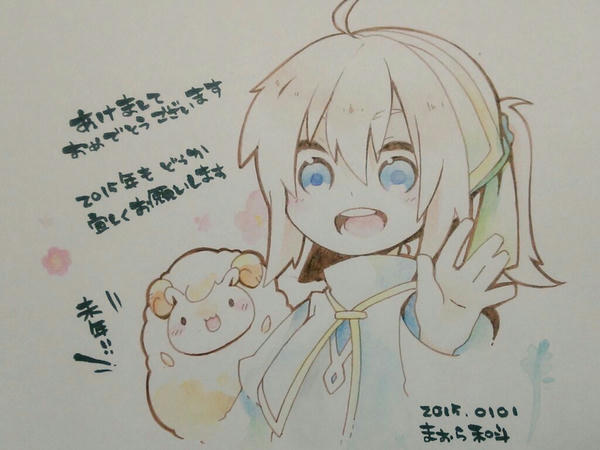 あけまして
おめでとうございます
2015年も どうか
宜しくお願いします
未年!!
2015.0101
まおら和斗